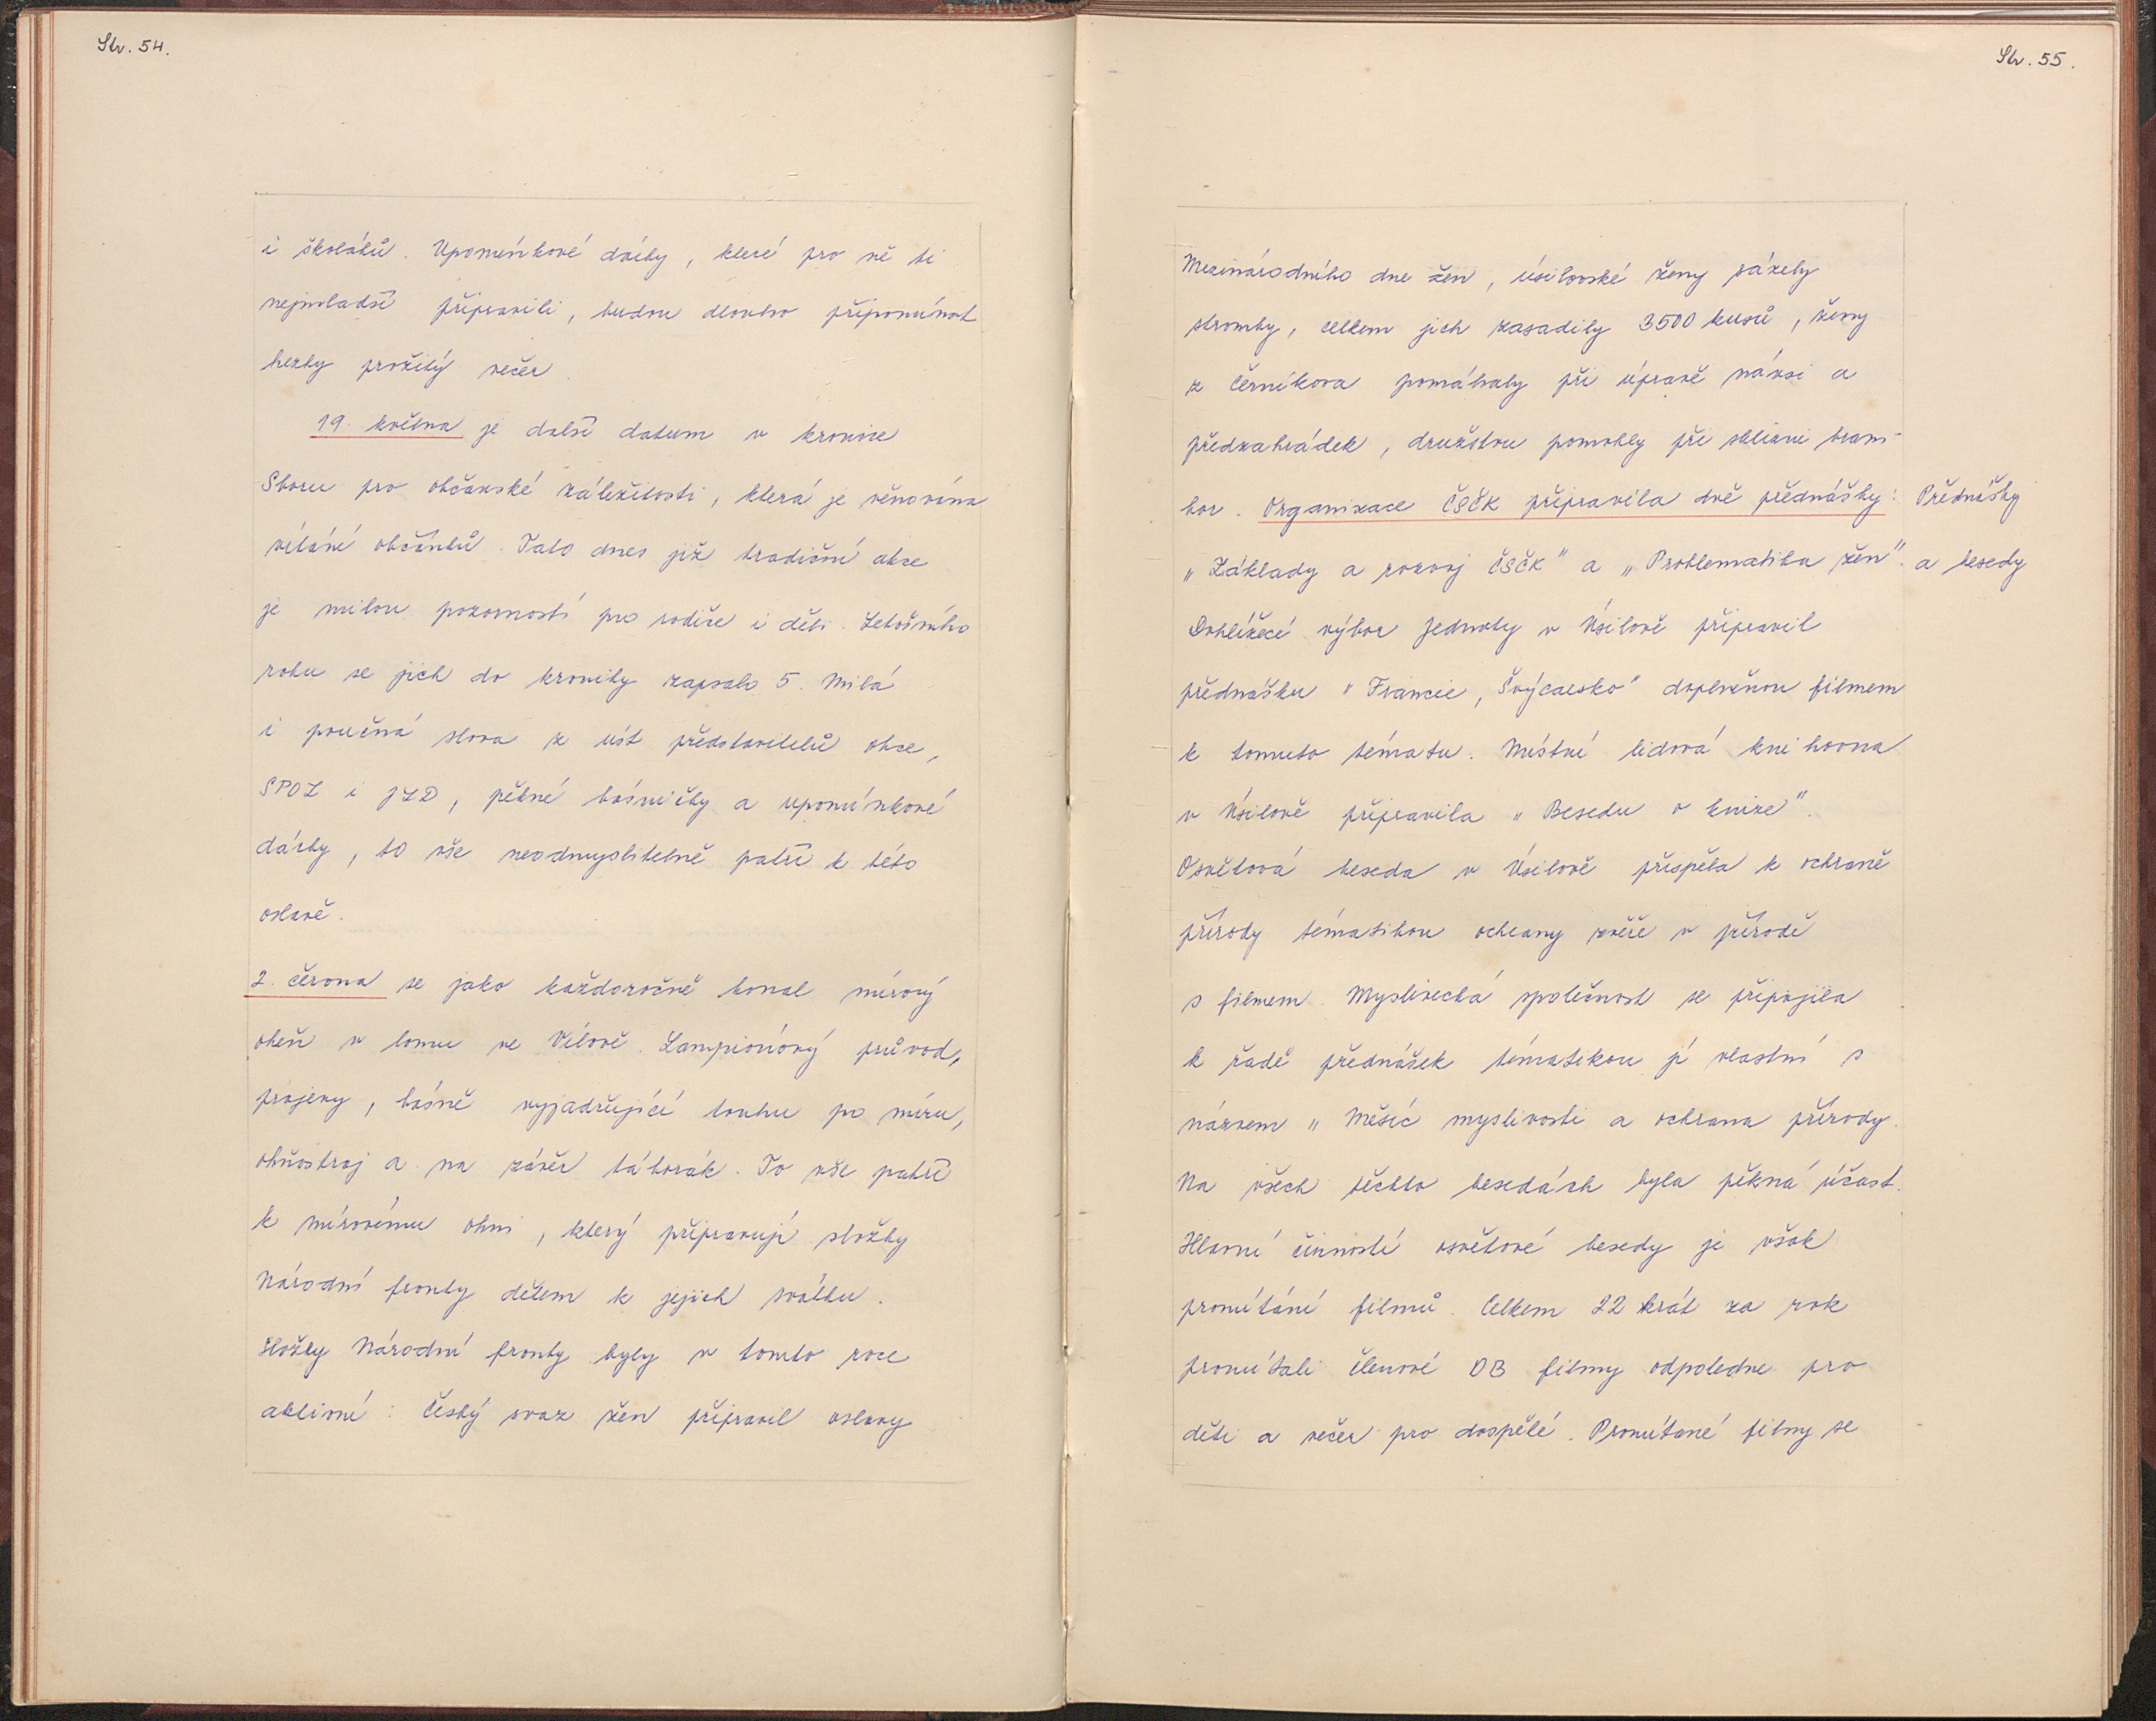 Str. 54.
i školáků. Upomínkové dárky, které pro ně ti
nejmladší připravili, budou dlouho připomínat
hezky prožitý večer.
19. května je další datum v kronice
Sboru pro občanské záležitosti, která je věnována
vítání občánků. Tato dnes již tradiční akce
je milou pozorností pro rodiče i děti. Letošního
roku se jich do kroniky zapsalo 5. Milá
i poučná slova z úst představitelů obce,
SPOZ i JZD, pěkné básničky a upomínkové
dárky, to vše neodmyslitelně patří k této
oslavě.
2. června se jako každoročně konal mírový
oheň v lomu ve Vílově. Lampiónový průvod,
projevy, básně vyjadřující touhu po míru,
ohňostroj a na závěr táborák. To vše patří
k mírovému ohni, který připravují složky
Národní fronty dětem k jejich svátku.
Složky Národní fronty byly v tomto roce
aktivní: Český svaz žen připravil oslavy
Str. 55.
Mezinárodního dne žen, úsilovské ženy sázely
stromky, celkem jich zasadily 3500 kusů, ženy
z Černíkova pomáhaly při úpravě návsi a
předzahrádek, družstvu pomohly při sklizni bram-
bor. Organizace ČSČK připravila dvě přednášky: Přednášky
„Základy a rozvoj ČSČK" a „Problematika žen". a besedy
Dohlížecí výbor Jednoty v Úsilově připravil
přednášku "Francie, Švýcarsko" doplněnou filmem
k tomuto tématu. Místní lidová knihovna
v Úsilově připravila „Besedu o knize".
Osvětová beseda v Úsilově přispěla k ochraně
přírody tématikou ochrany zvěře v přírodě
s filmem. Myslivecká společnost se připojila
k řadě přednášek tématikou jí vlastní s
názvem „Měsíc myslivosti a ochrana přírody.
Na všech těchto besedách byla pěkná účast.
Hlavní činností osvětové besedy je však
promítání filmů. Celkem 22 krát za rok
promítali členové OB filmy odpoledne pro
děti a večer pro dospělé. Promítané filmy se